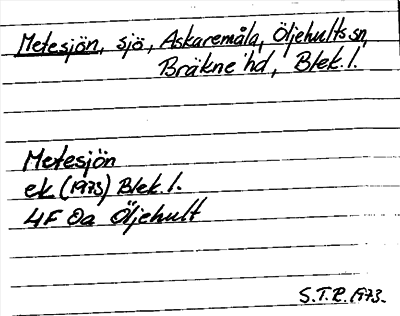 Metesjön, sjö, Askaremåla, Öljehults sn,
Bräkne hd, Blek. l.
Metesjön
ek (1973) Blek. l.
4F 0a Öljehult
S.T.R. 1973.